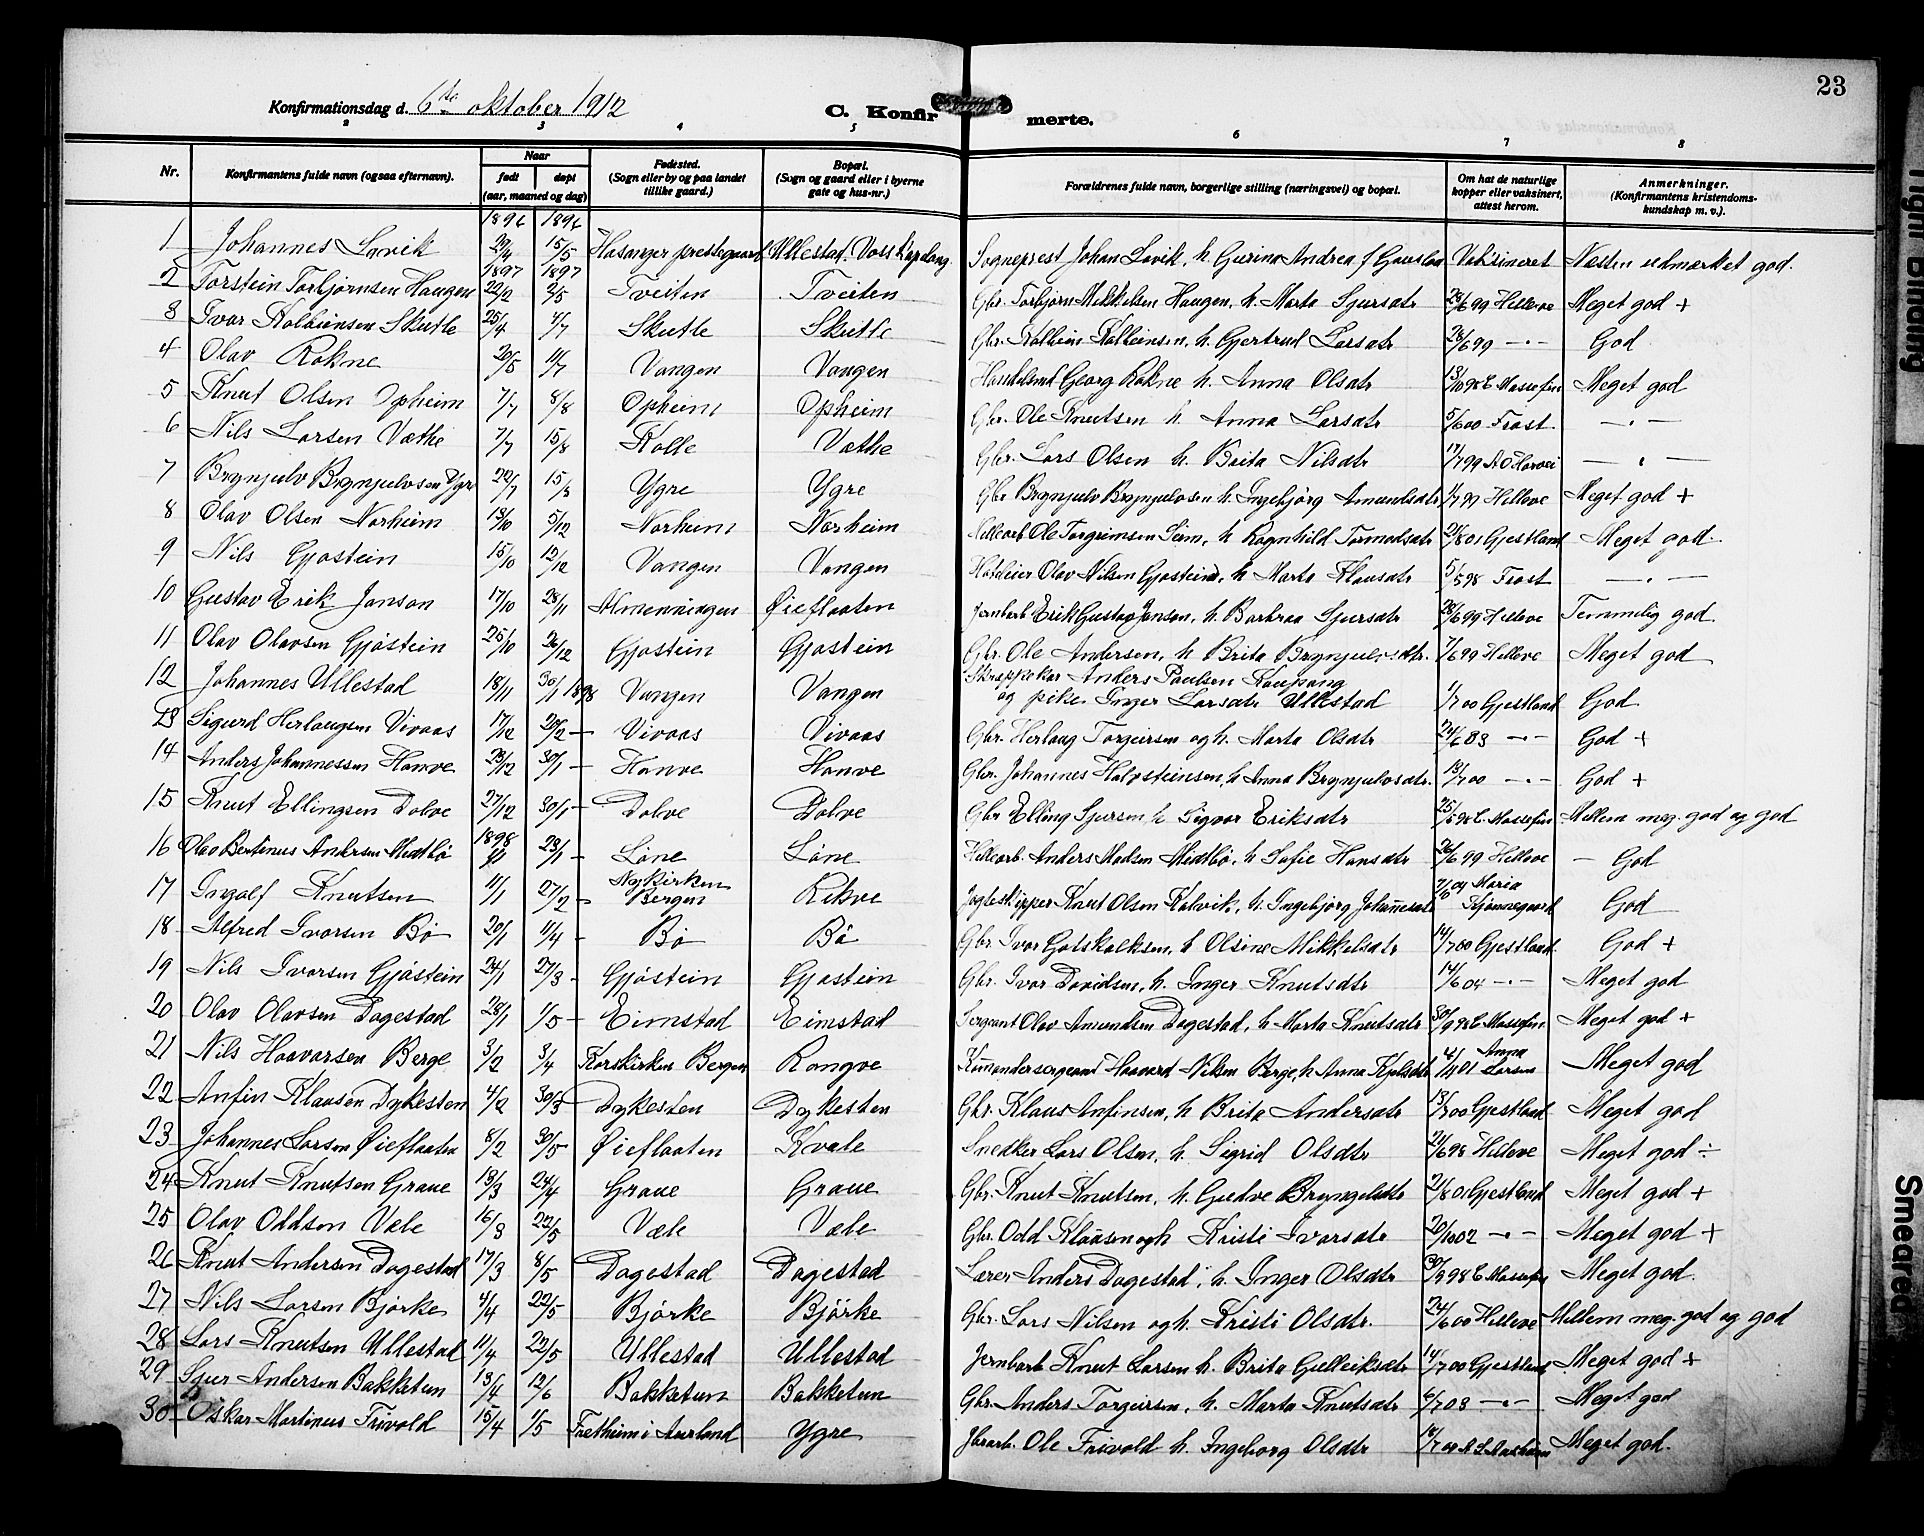 23
Konfirmationsdag d. 6te oktober 1912
C. Konfirmerte.
2 3 4 5 6 7 8
Nr. Konfirmantens fulde navn (ogsaa efternavn). Naar født døpt (aar, maaned og dag) Fødested. (Sogn eller by og paa landet tillike gaard.) Bopæl. (Sogn og gaard eller i byerne gate og hus-nr.) Forældrenes fulde navn, borgerlige stilling (næringsvei) og bopæl. Om hat de naturlige kopper eller vaksinert, attest herom. Anmerkninger. (Konfirmantens kristendomskundskap m. v.).
1896 1896
1 Johannes Lavik 29/4 15/5 Hosanger prestegaard Ullestad. Voss Sogneprest Johan Lavik, h. Gurina Andrea f Vaksineret Næsten udmærket god.
1897 1897
2 Torstein Torbjørnsen Haugen 22/2 2/5 Tveiten Tveiten Gbr. Torbjørn Mikkelsen Haugen, h. Marta Sjursdtr 28/6 99 Helleve Meget god +
3 Ivar Kolbeinsen Skutle 25/4 4/7 Skutle Skutle Gbr. Kolbein Kolbeinsen, h. Gjertrud Larsdtr 26/6 99 -"- God
4 Olav Rokne 20/5 11/7 Vangen Vangen Handelsmd Georg Rokne h. Anna Olsdtr 13/10 98 E. Massefin Meget god
5 Knut Olsen Opheim 7/7 8/8 Opheim Opheim Gbr. Ole Knutsen h. Anna Larsdtr 5/6 00 Frost -"-
6 Nils Larsen Vethe 7/7 15/8 Kolle Vethe Gbr. Lars Olsen h. Brita Nilsdtr 17/7 99 A O Horvei -"-
7 Brynjulv Brynjulvsen Ygre 22/7 15/8 Ygre Ygre Gbr Brynjulv Brynjulvsen h. Ingebjørg Amundsdtr 1/7 99 Helleve Meget god +
8 Olav Olsen Norheim 13/10 5/12 Norheim Norheim Hellearb. Ole Torgeirnsen Seim, h. Ragnhild Tormodsdtr 21/8 01 Gjestland Meget god.
9 Nils Gjøstein 15/10 12/12 Vangen Vangen Hoteleier Olav Nilsen Gjøstein, h. Marta Klausdtr 5/5 98 Frost -"-
10 Gustav Erik Janson 17/10 28/11 Almenningen Øieflaaten Jernbarb. Erik Gustav Janson, h. Barbraa Sjursdtr 28/6 99 Helleve Temmelig god.
11 Olav Olavsen Gjøstein 25/10 26/12 Gjøstein Gjøstein Gbr. Ole Andersen, h. Brita Brynjulvsdtr. 7/6 99 Helleve Meget god
12 Johannes Ullestad 18/11 30/1 1898 Vangen Vangen Skreppekar Anders Paulsen Kaupang
og pike Inger Larsdtr Ullestad 1/7 00 Gjestland God
13 Sigurd Herlaugsen Vivaas 17/12 20/2 - Vivaas Vivaas Gbr. Herlaug Torgeirsen og h. Marta Olsdtr 24/6 03 -"- God +
14 Anders Johannessen Hanve 23/12 30/1 - Hanve Hanve Gbr. Johannes Halvsteinsen, h. Anna Brynjulvsdtr. 13/7 00 -"- God +
15 Knut Ellingsen Dolve 27/12 30/1 - Dolve Dolve Gbr Elling Sjursen h. Sigvor Eriksdtr 25/5 98 E. Massefin Mellem meg. god og god
1898
16 Olav Bertinus Andersen Midtbø 23/1 - Løne Løne Hellearb. Anders Madsen Midtbø, h. Sofie Hansdtr 26/6 99 Helleve - God
17 Ingolf Knutsen 11/1 27/2 - Nykirken Bergen Rekve Jagteskipper Knut Olsen Kalvik, h. Ingebjørg Johannesdtr 04 Maria God
18 Alfred Ivarsen Bø 20/1 11/4 - Bø Bø Gbr. Ivar Gotskalksen, h. Olsine Mikkelsdtr 14/7 00 Gjestland God +
19 Nils Ivarsen Gjøstein 24/1 27/3 - Gjøstein Gjøstein Gbr. Ivar Davidsen, h. Inger Knutsdtr 14/6 04 -"- Meget god
20 Olav Olavsen Dagestad 28/1 1/5 - Eimstad Eimstad Sergeant Olav Amundsen Dagestad, h. Marta Knutsdtr 30/9 98 E. Massefin Meget god +
21 Nils Haavarsen Berge 3/2 3/4 Korskirken Bergen Rongve Komandersergeant Haavard Nilsen Berge, h. Anna Kjelsdtr 4/11 01 Anna Larsen Meget god
22 Anfin Klausen Dykesten 4/2 30/3 Dykesten Dykesten Gbr. Klaus Anfinsen, h. Brita Andersdtr 13/7 00 Gjestland Meget god
23 Johannes Larsen Øieflaaten 8/2 30/5 Øieflaaten Kvale Snedker Lars Olsen, h. Sigrid Olsdtr 24/6 98 Helleve Meget god ÷
24 Knut Knutsen Graue 13/3 24/4 Graue Graue Gbr. Knut Knutsen, h. Gudve Bryngelsdtr 21/8 01 Gjestland Meget god +
25 Olav Oddsen Væle 16/3 22/5 Væle Væle Gbr. Odd Klausen og h. Kristi Ivarsdtr 20/10 02 -"- Meget god +
26 Knut Andersen Dagestad 17/3 8/5 Dagestad Dagestad Lærer Anders Dagestad, h. Inger Olsdtr 30/9 98 E. Massefin Meget god.
27 Nils Larsen Bjørke 4/4 22/5 Bjørke Bjørke Gbr. Lars Nilsen og h. Kristi Olsdtr. 24/6 00 Helleve Mellem meg. god og god
28 Lars Knutsen Ullestad 11/4 22/5 Ullestad Ullestad Jernbarb Knut Larsen h. Brita Gulleiksdtr 14/7 00 Gjestland Meget god +
29 Sjur Andersen Bakketun 13/4 12/6 Bakketun Bakketun Gbr. Anders Torgeirsen, h. Marta Knutsdtr 6/7 03 -"- Meget god
30 Oskar Martinus Trivold 15/4 1/5 Fretheim i Aurland Ygre Jbrarb. Ole Trivold h. Ingeborg Olsdtr Meget god.
Tight Binding
Smeared